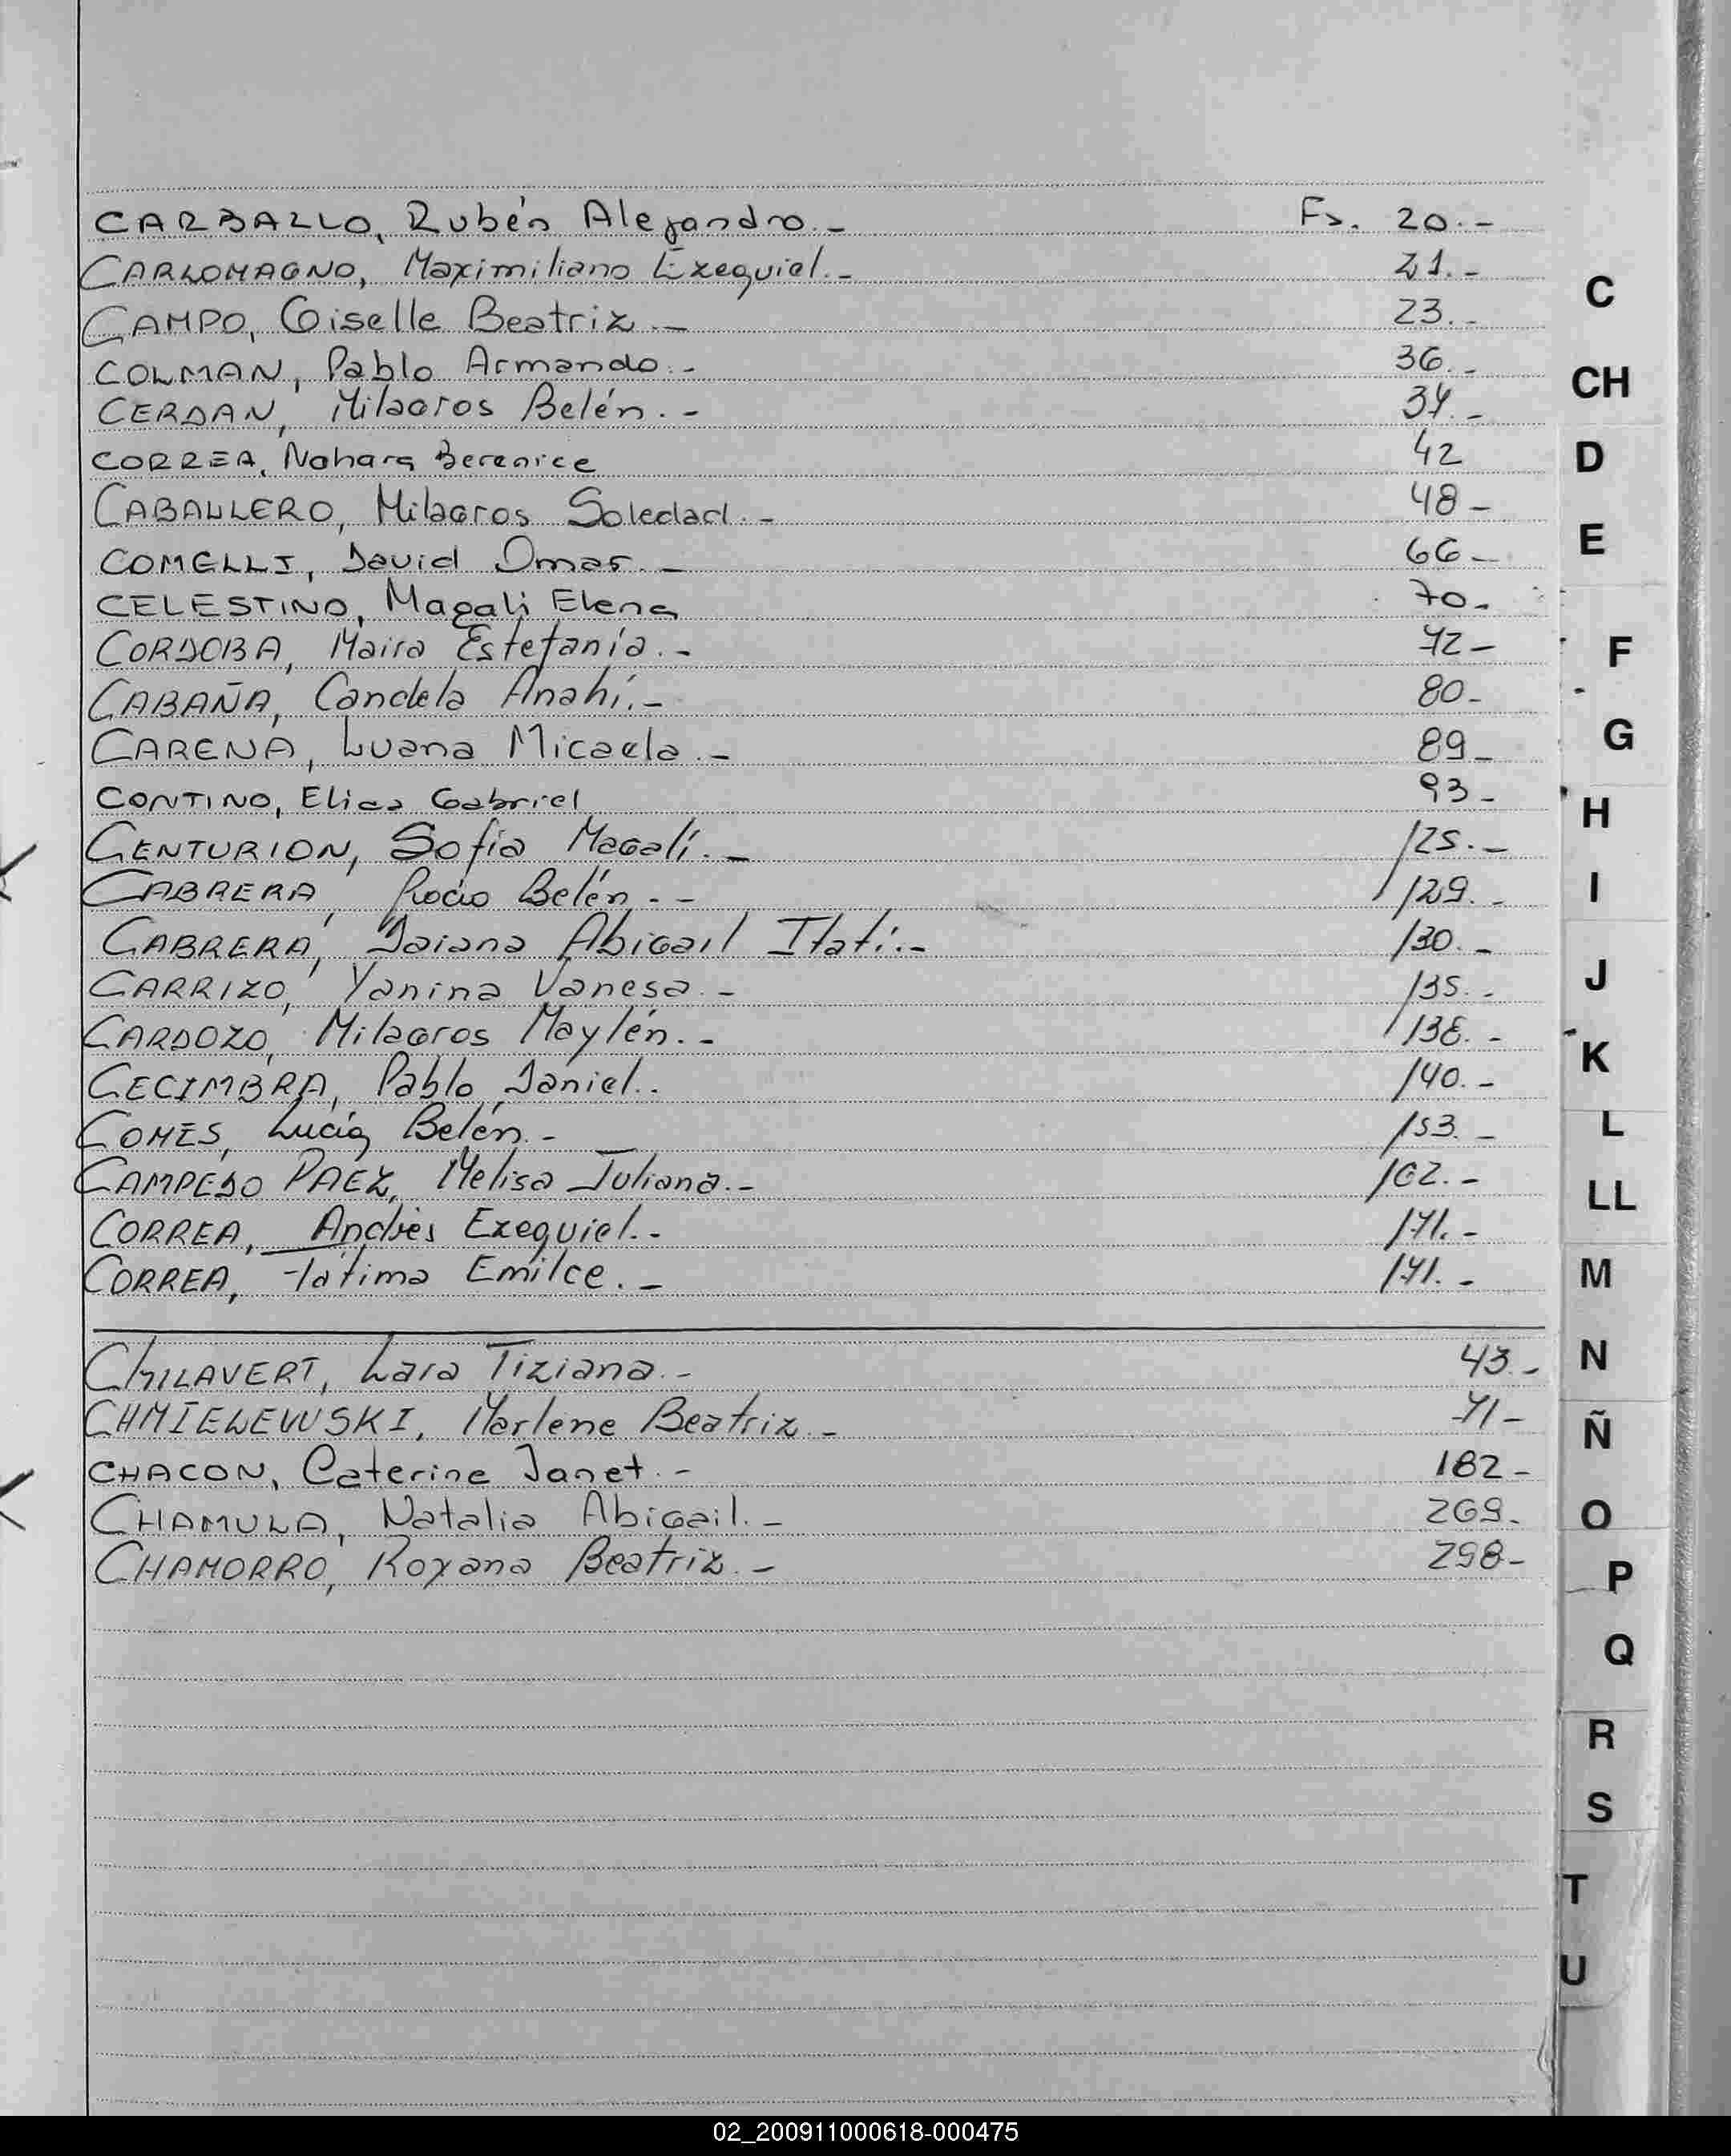 CARBALLO, Rubén Alejandro.- Fs. 20.-
CARLOMAGNO, Maximiliano Exequiel.- 21.-
CAMPO, Giselle Beatriz.- 23.-
COLMAN, Pablo Armando.- 36.-
CERDAN, Milagros Belén.- 34.-
CORREA, Nahara Berenice 42
CABALLERO, Milagros Soledad.- 48-
COMELLI, David Omar.- 66-
CELESTINO, Magali Elena 70-
CORDOBA, Maira Estefanía.- 72-
CABAÑA, Candela Anahí.- 80-
CARENA, Luana Micaela.- 89-
CONTINO, Elias Gabriel 93-
CENTURION, Sofia Magalí.- 125.-
CABRERA, Rocio Belén.- 129.-
CABRERA, Daiana Abigail Itatí.- 130.-
CARRIZO, Yanina Vanesa.- 135.-
CARDOZO, Milagros Maylén.- 138.-
CECIMBRA, Pablo Daniel.. 140.-
COMES, Lucia Belén.- 153.-
CAMPEDO PAEZ, Melisa Juliana.- 162.-
CORREA, Andrés Exequiel.- 171.-
CORREA, Fatima Emilce.- 171.-
CHILAVERT, Lara Tiziana.- 43.-
CHMIELEWSKI, Marlene Beatriz.- 71-
CHACON, Caterine Janet.- 182-
CHAMULA, Natalia Abigail.- 269.
CHAMORRO, Roxana Beatriz.- 298-
C
CH
D
E
F
G
H
I
J
K
L
LL
M
N
Ñ
O
P
Q
R
S
T
U
02_200911000618-000475